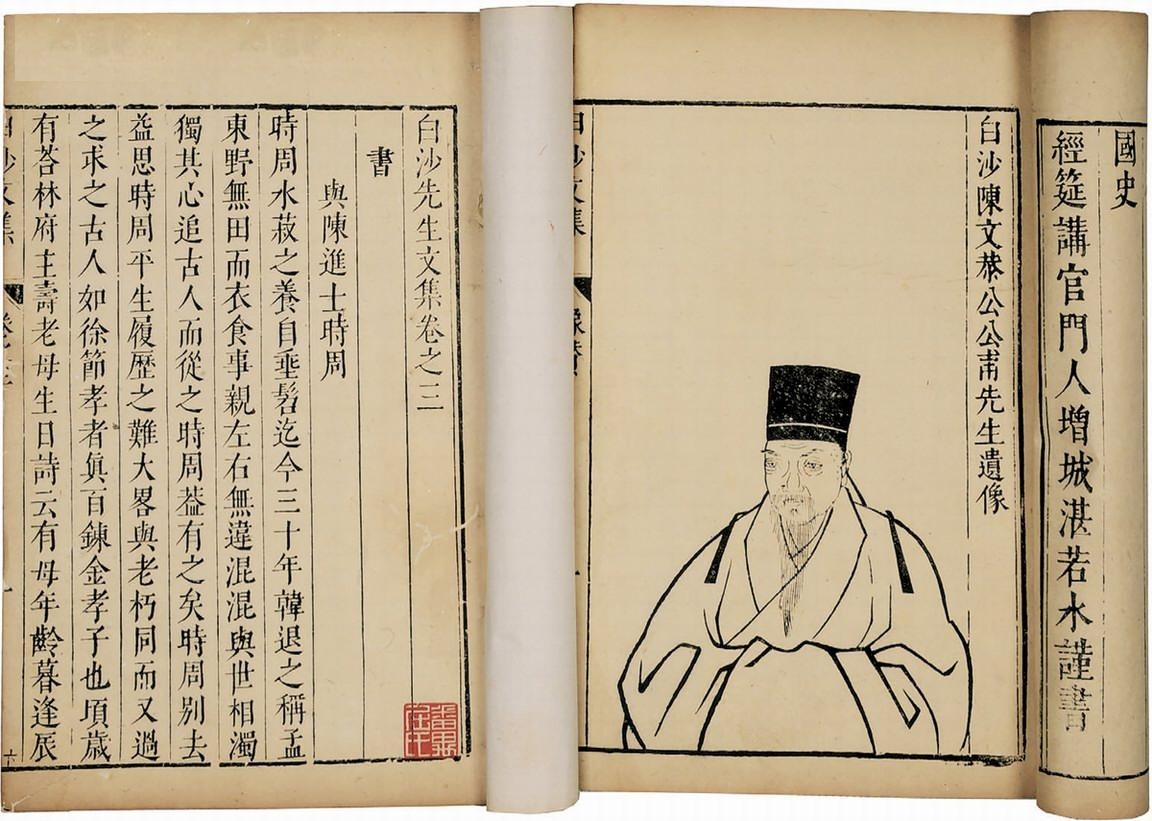 國史
經筵講官門人增城湛若水謹書
白沙陳文恭公公甫先生遺像
白沙文集
白沙先生文集卷之三
書
與陳進士時周
時周水菽之養自垂髫迄今三十年韓退之稱孟
東野無田而衣食事親左右無違混混與世相濁
獨其心追古人而從之時周葢有之矣時周別去
益思時周平生履歷之難大畧與老朽同而又過
之求之古人如徐節孝者眞百鍊金孝子也頃歲
有荅林府主壽老母生日詩云有母年齡暮逢辰
白沙文集 卷之三